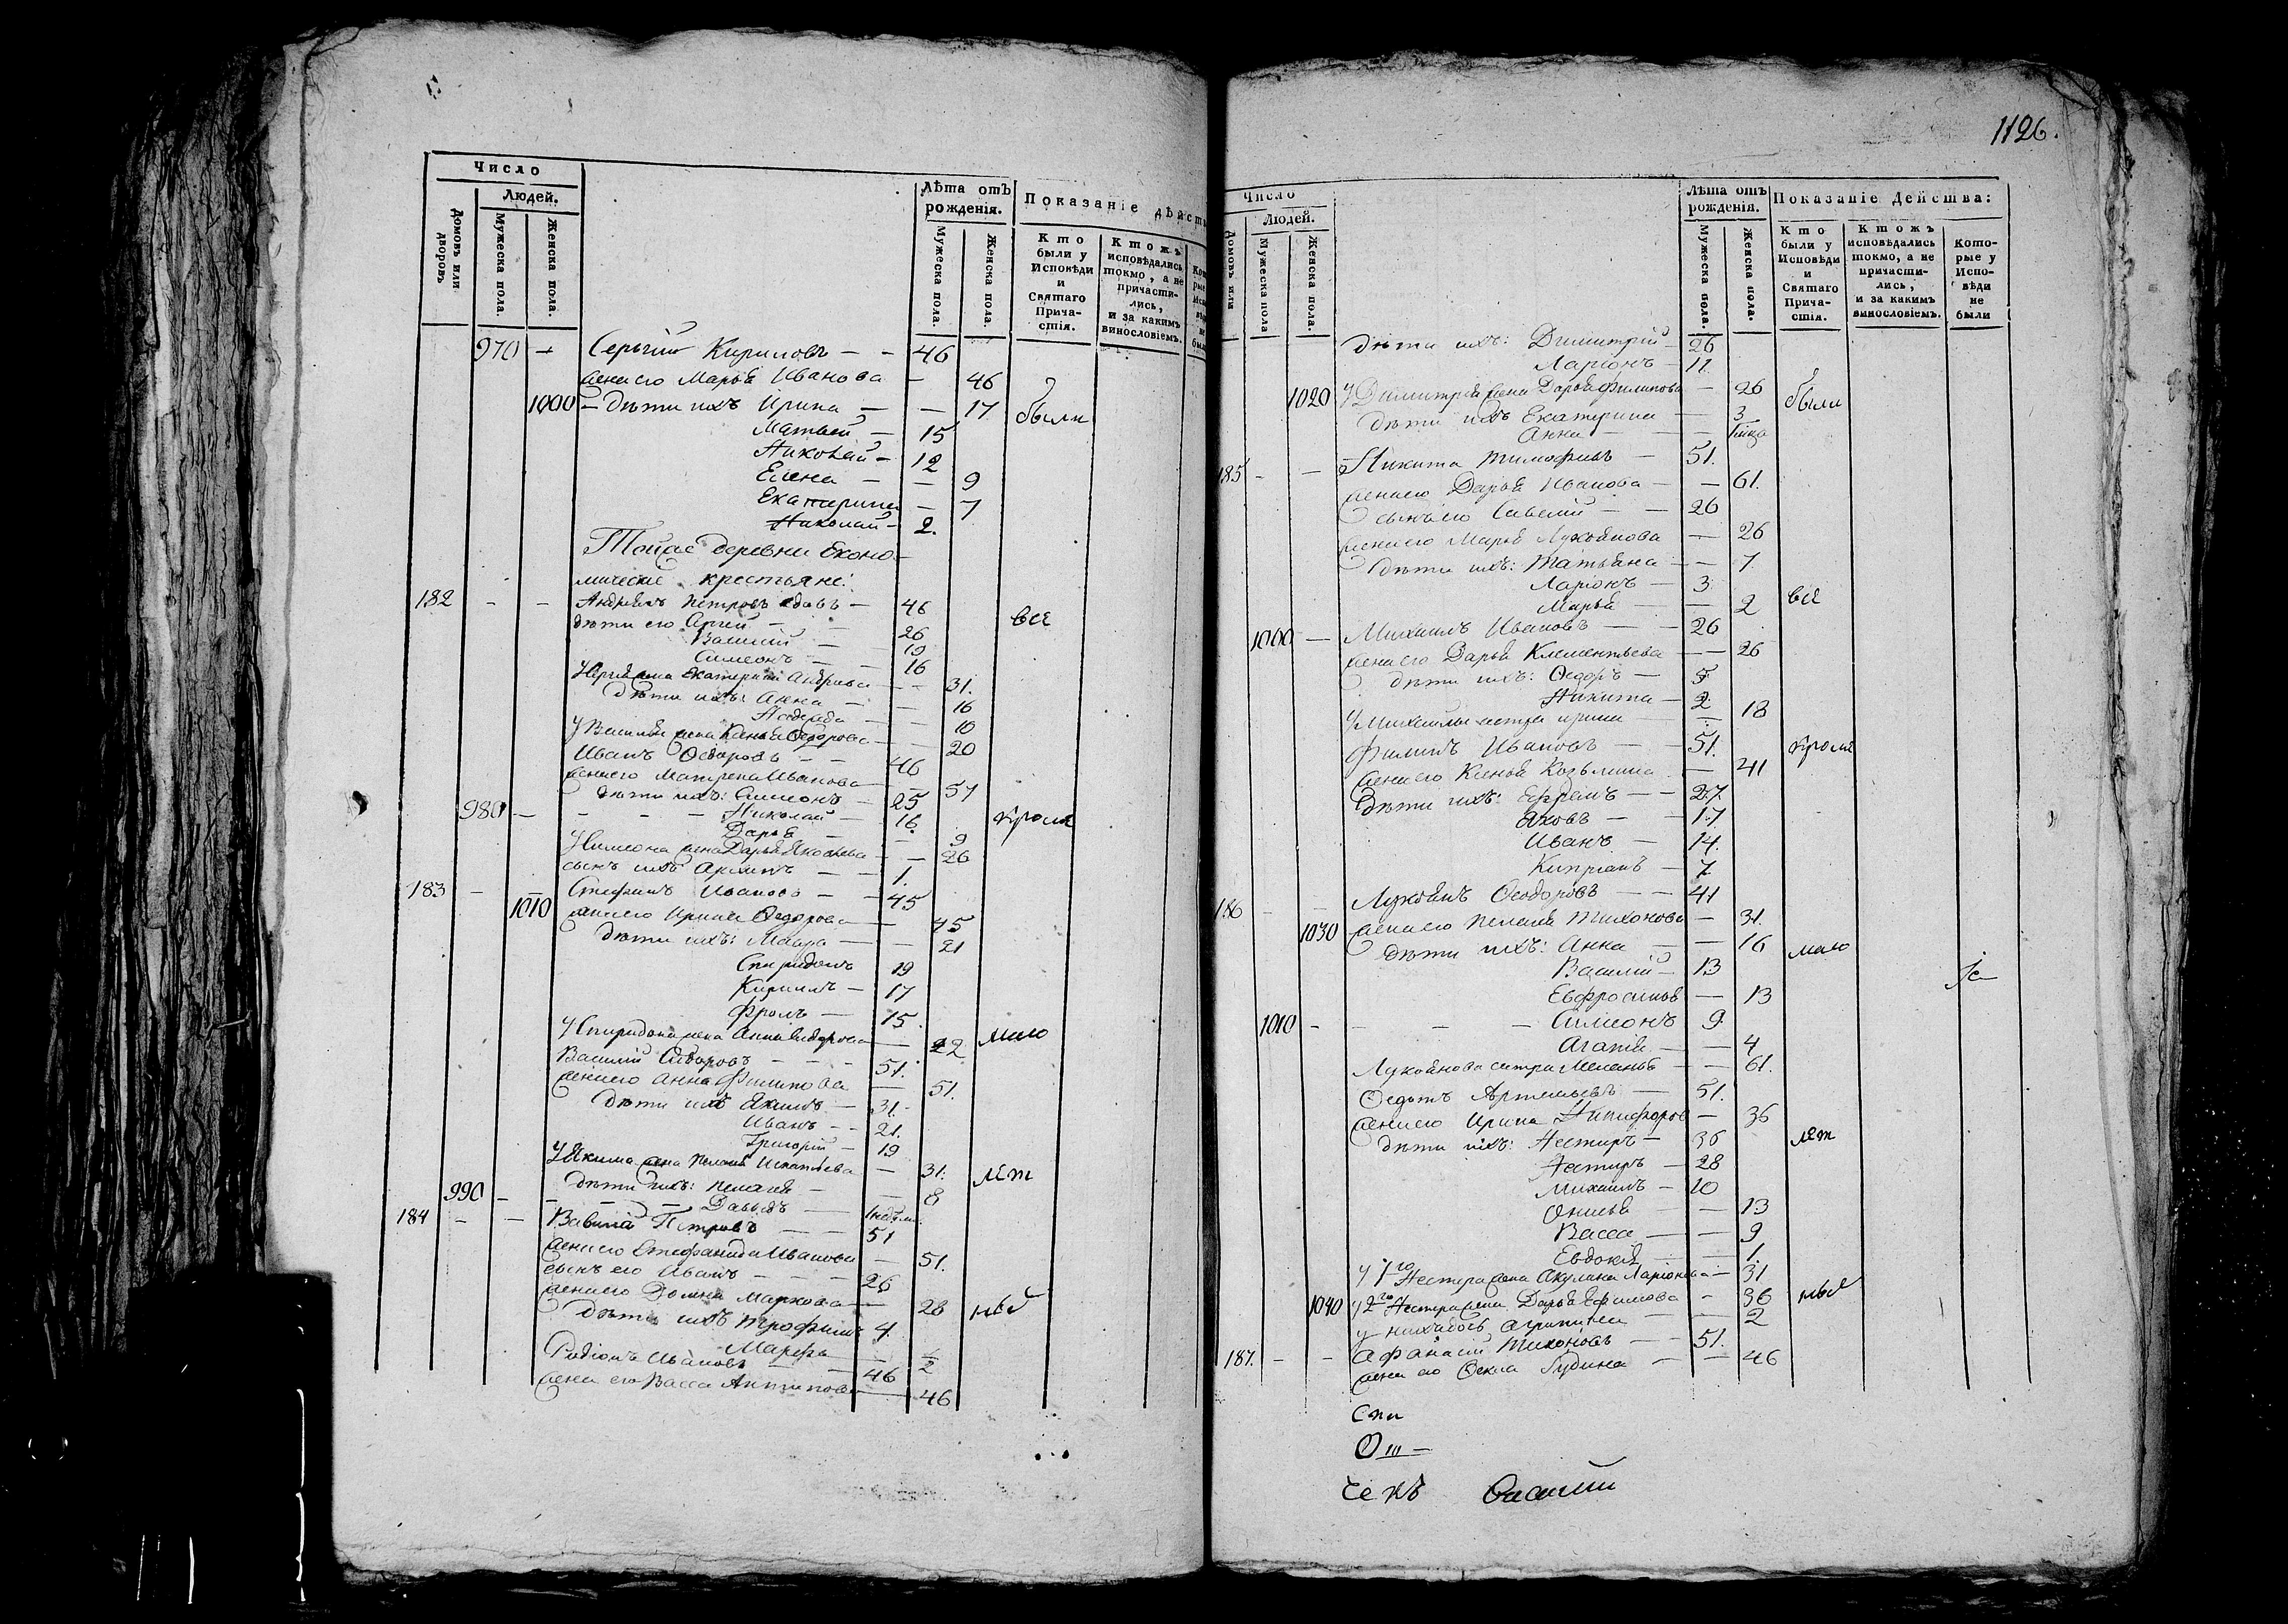 Число
Людей.
Домовъ или дворовъ
Мужеска пола.
Женска пола.
Лѣта отъ рожденія.
Мужеска пола.
Женска пола.
Показаніе дѣйст
Кто были у Исповѣди и Святаго Прича-стія.
Ктожъ исповѣдались токмо, а не причасти-лись, и за какимъ винословіемъ.
970 Сергий Кириловъ — - 46
жена его Марья Иванова — 46
1000 — дѣти ихъ Ирина — — 17 были
Матвей — 15
Николай — 12
Елена — — 9
Екатерина — 7
Николай — 2.
Тойже деревни Еконо-
мическіе крестьяне:
182 - - Андреянъ Петровъ вдовъ — 46 все
дѣти его Сергий — 26
Василий — 19
Симеонъ — 16
31.
дѣти ихъ: Анна — — 16
Надежда — — 10
У Василья жена Ксенья Ѳедорова — — 20
Иванъ Ѳедоровъ — — 46
жена его Матрена Иванова — 51
дѣти ихъ: Симеонъ — 25
980 — Николай — 16 кроме
Дарья — 9
У Симеона жена Дарья Яковлева — — 26
сынъ ихъ Архипъ — — 1.
183 - Стефанъ Ивановъ — 45
1010 жена его Ирина Ѳедорова — 45
дѣти ихъ: Мавра — — 21
Спиридонъ 19
Кирилъ — 17
Фролъ — 15
У Спиридона жена Анна Сидорова — 22 мало
Василий Сидоровъ — 51.
жена его Анна Филипова — 51.
дѣти ихъ Якимъ — 31.
Иванъ — 21.
Григорий — 19
У Якима жена Пелагея Игнатьева — 31. лет
дѣти ихъ: Пелагея — 8
990 - Давыдъ —
184 - - Вавила Петровъ — 51
жена его Стефанида Иванова — 51.
сынъ его Иванъ — — 26
жена его Домна Маркова — 28 ныхъ
дѣти ихъ Трофимъ 4.
Марфа — 2
Родіонъ Ивановъ — 46
жена его Васса Антипова — 46
1126.
Число
Людей.
Домовъ или
Мужеска пола
Женска пола.
Лѣта отъ рожденія.
Мужеска пола.
Женска пола.
Показаніе Действа:
Кто были у Исповѣди и Святаго Прича-стія.
Ктожъ исповѣдались токмо, а не причасти-лись, и за какимъ винословіемъ.
Кото-рые у Испо-вѣди не были
дѣти ихъ: Димитрий — 26
Ларіонъ — 11
1020 У Димитрия жена Дарья Филипова — 26 были
дѣти ихъ Екатерина — 3
Анна —
185 - - Никита Тимофеевъ — 51.
жена его Дарья Иванова — — 61.
сынъ его Савелий — — 26
жена его Марья Лукоянова — 26
дѣти ихъ: Татьяна — — 7.
Ларіонъ — 3.
Марья — — 2 все
1000 — Михаилъ Ивановъ — — 26
жена его Дарья Клементьева — — 26
дѣти ихъ: Ѳедоръ — 5
Никита — 2
У Михайлы сестра Ирина — 18
Филипъ Ивановъ — — 51. кроме
жена его Ксенья Козьмина — 41
дѣти ихъ: Ефремъ — — 27.
Яковъ — — 17
Иванъ — 14.
Кипріянъ — 7
186 - - Лукоянъ Ѳеодоровъ — — 41
1030 жена его Пелагея Тихонова — 31.
дѣти ихъ: Анна — — 16 мало
Василий — 13
Евфросинья — 13
1010 - - - — Симеонъ 9
Агапія — — 4
Лукоянова сестра Меланья — — 61.
Ѳедотъ Артемьевъ — 51.
жена его Ирина Никифорова — 36
дѣти ихъ: Нестиръ — 36 лет
Нестиръ — 28
Михаилъ — 10
— 13
Васса — — 9
Евдокія — — 1.
У 1го Нестира жена Акулина Ларіонова — 31
1040 У 2го Нестира жена Дарья Ефимова — 36 ныхъ
у нихъ дочь Агрипина — 2
187. - - Афанасій Тихоновъ — 51.
жена его Ѳекла — — 46